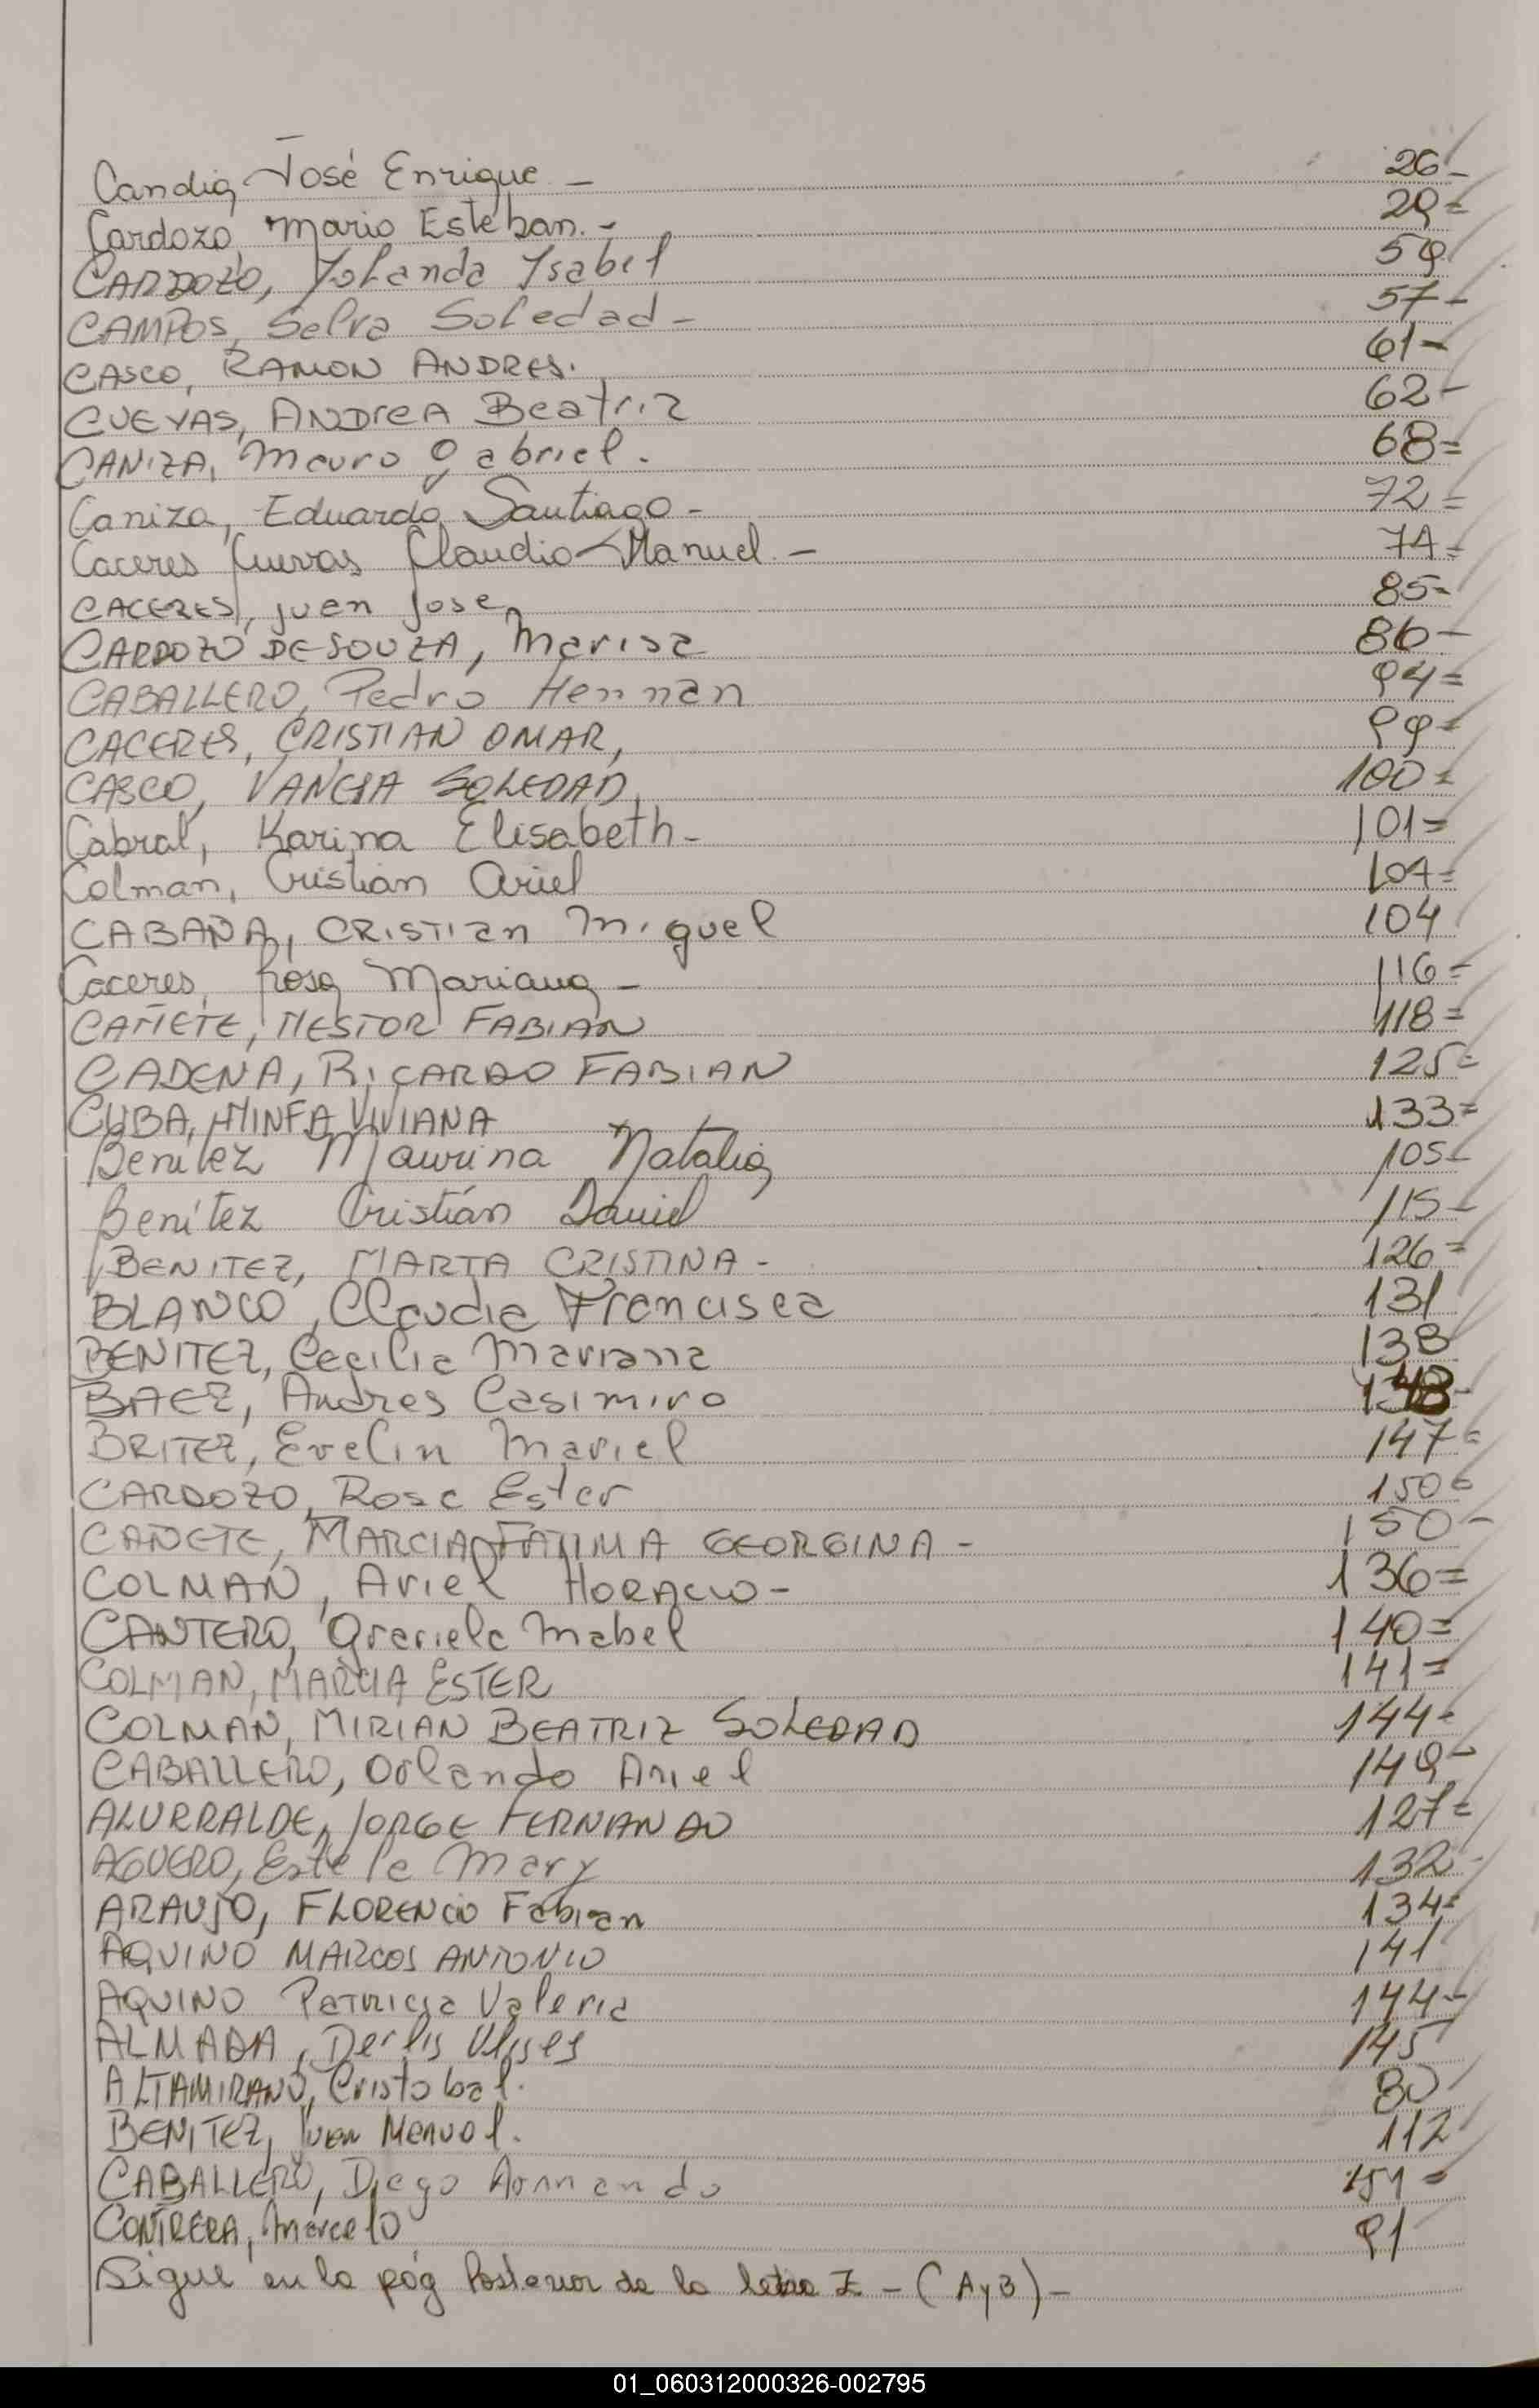 Candia, José Enrique - 26-
Cardozo Mario Esteban.- 29=
CARDOZO, Yolanda Ysabel 59
CAMPOS, Selva Soledad - 57-
CASCO, RAMON ANDRES. 61-
CUEVAS, ANDREA Beatriz 62-
CANIZA, Mauro Gabriel. 68=
Caniza, Eduardo Santiago - 72=
Caceres Cuevas Claudio Manuel - 74=
CACERES, Juan Jose, 85-
CARDOZO DE SOUZA, Marisa 86-
CABALLERO, Pedro Hernnan 94=
CACERES, CRISTIAN OMAR, 99=
CASCO, VANESA SOLEDAD, 100=
Cabral, Karina Elisabeth - 101=
Colman, Cristian Ariel 104=
CABAÑA, CRISTIan Miguel 104
Caceres, Rosa Mariana - 116=
CAÑETE, NESTOR FABIAN 118=
CADENA, RICARDO FABIAN 125=
CUBA, NINFA VIVIANA 133=
Benitez Maurina Natalia 105=
Benítez Cristián Daniel 115-
BENITEZ, MARTA CRISTINA - 126=
BLANCO, Claudia Francisca 131
BENITEZ, Cecilia Mariana 138
BAEZ, Andres Casimiro -
BRITEZ, Evelin Mariel 147=
CARDOZO, Rosa Ester 150=
CAÑETE, MARCIA FATIMA GEORGINA - 150-
COLMAN, Ariel HORACIO - 136=
CANTERO, Graciela Mabel 140=
COLMAN, MARCIA ESTER 141=
COLMAN, MIRIAN BEATRIZ SOLEDAD 144=
CABALLERO, Orlando Ariel 149-
ALURRALDE, JORGE FERNANDO 127=
AGUERO, Estela Mary 132-
ARAUJO, FLORENCIO Fabian 134=
AQUINO MARCOS ANTONIO 141
AQUINO Patricia Valeria 144-
ALMADA, Derlis Ulises 145
ALTAMIRANO, Cristobal. 80
BENITEZ, Juan Manuel. 112
CABALLERO, Diego Armando 151=
CONTRERA, Marcelo 91
Sigue en la pág Posterior de la letra Z - (A y B) -
01_060312000326-002795